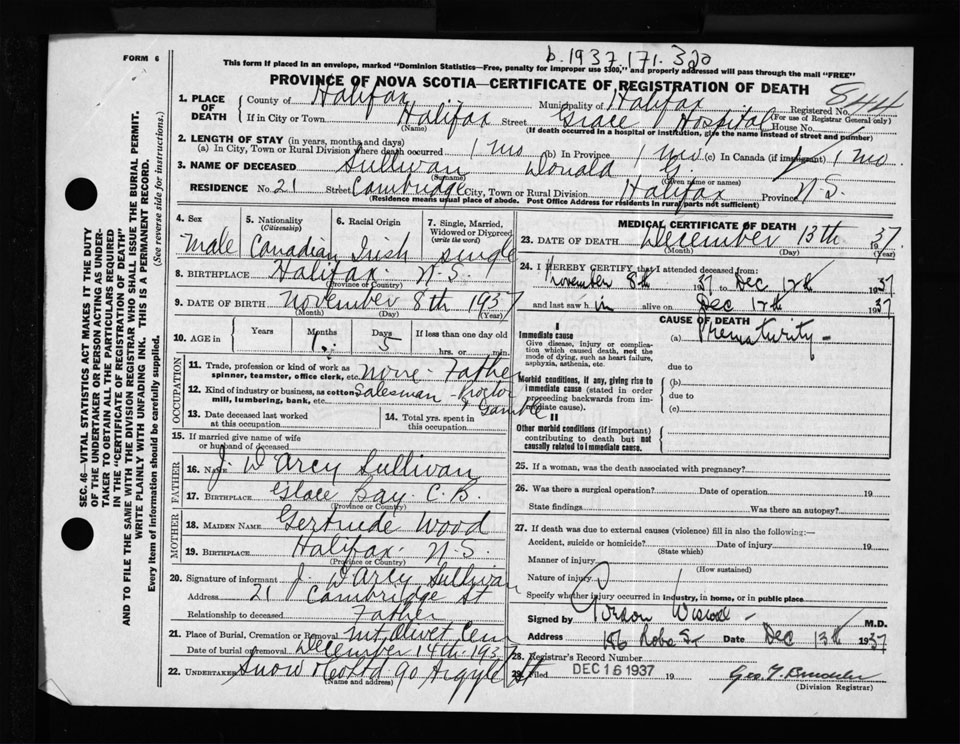 b. 1937. 171. 320
FORM 6
This form if placed in an envelope, marked "Dominion Statistics—Free, penalty for improper use $300," and properly addressed will pass through the mail "FREE"
PROVINCE OF NOVA SCOTIA—CERTIFICATE OF REGISTRATION OF DEATH
1. PLACE OF DEATH
County of Halifax Municipality of Halifax Registered No. 844
(For use of Registrar General only)
If in City or Town Halifax Street Grace Hospital House No.
(Name) (If death occurred in a hospital or institution, give the name instead of street and number)
2. LENGTH OF STAY (in years, months and days)
(a) In City, Town or Rural Division where death occurred 1 mo (b) In Province 1 mo (c) In Canada (if immigrant) 1 mo.
3. NAME OF DECEASED Sullivan Donald G.
(Surname) (Given name or names)
RESIDENCE No. 21 Street Cambridge City, Town or Rural Division Halifax Province N.S.
(Residence means usual place of abode. Post Office Address for residents in rural parts not sufficient)
4. Sex Male
5. Nationality (Citizenship) Canadian
6. Racial Origin Irish
7. Single, Married, Widowed or Divorced (write the word) single
8. BIRTHPLACE Halifax. N.S.
(Province or Country)
9. DATE OF BIRTH November 8th 1937
(Month) (Day) (Year)
10. AGE in Years Months 1 Days 5 If less than one day old
hrs. or min.
OCCUPATION
11. Trade, profession or kind of work as spinner, teamster, office clerk, etc. None - Father
12. Kind of industry or business, as cotton mill, lumbering, bank, etc. Salesman - Proctor Gamble
13. Date deceased last worked at this occupation
14. Total yrs. spent in this occupation
15. If married give name of wife or husband of deceased
FATHER
16. NAME J. D'Arcy Sullivan
17. BIRTHPLACE Glace Bay. C.B.
(Province or Country)
MOTHER
18. MAIDEN NAME Gertrude Wood
19. BIRTHPLACE Halifax. N.S.
(Province or Country)
20. Signature of informant J. D'Arcy Sullivan
Address 21 Cambridge St
Relationship to deceased Father
21. Place of Burial, Cremation or Removal Mt. Olivet Cem
Date of burial or removal December 14th. 1937
22. UNDERTAKER Snow & Co Ltd 90 Argyle St
(Name and address)
MEDICAL CERTIFICATE OF DEATH
23. DATE OF DEATH December 13th 1937.
(Month) (Day)
24. I HEREBY CERTIFY that I attended deceased from:
November 8th 1937 to Dec 12th 1937
and last saw him alive on Dec 12th 1937
CAUSE OF DEATH
I
Immediate cause
Give disease, injury or complication which caused death, not the mode of dying, such as heart failure, asphyxia, asthenia, etc.
(a) Prematurity -
due to
Morbid conditions, if any, giving rise to immediate cause (stated in order proceeding backwards from immediate cause).
(b)
due to
(c)
II
Other morbid conditions (if important) contributing to death but not causally related to immediate cause.
25. If a woman, was the death associated with pregnancy?
26. Was there a surgical operation? Date of operation 19
State findings Was there an autopsy?
27. If death was due to external causes (violence) fill in also the following:—
Accident, suicide or homicide? Date of injury 19
(State which)
Manner of injury
(How sustained)
Nature of injury
Specify whether injury occurred in industry, in home, or in public place
Signed by Gordon M.D.
Address Date Dec 13th 1937
28. Registrar's Record Number
29. Filed DEC 16 1937 19
(Division Registrar)
SEC. 46—VITAL STATISTICS ACT MAKES IT THE DUTY
OF THE UNDERTAKER OR PERSON ACTING AS UNDERTAKER TO OBTAIN ALL THE PARTICULARS REQUIRED
IN THE "CERTIFICATE OF REGISTRATION OF DEATH"
AND TO FILE THE SAME WITH THE DIVISION REGISTRAR WHO SHALL ISSUE THE BURIAL PERMIT.
WRITE PLAINLY WITH UNFADING INK. THIS IS A PERMANENT RECORD.
Every item of information should be carefully supplied. (See reverse side for instructions.)